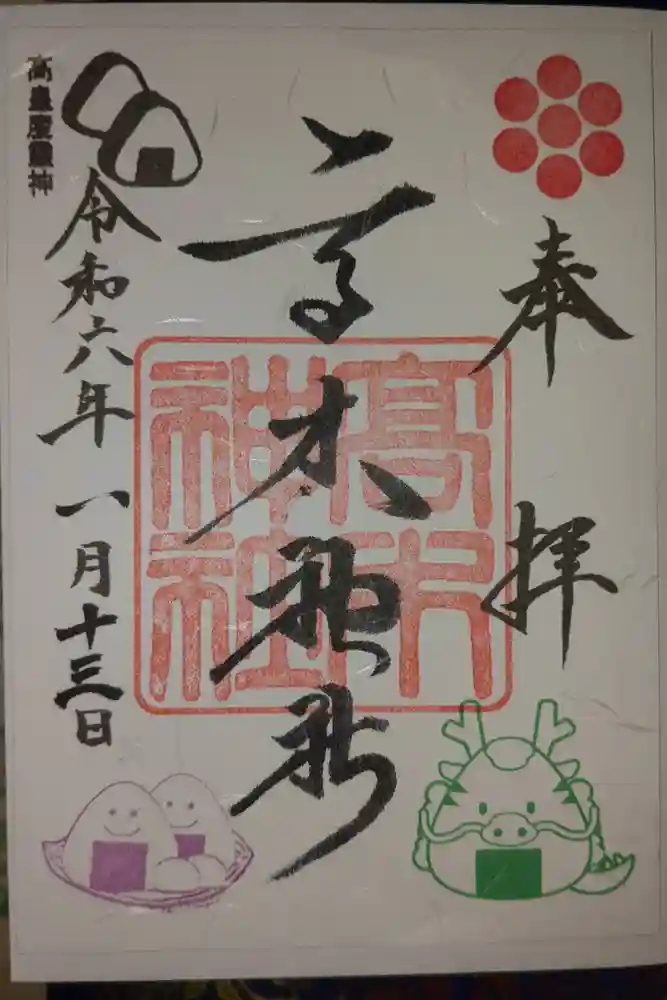 奉拝
高木神社
高木神社
令和六年一月十三日
高皇産靈神